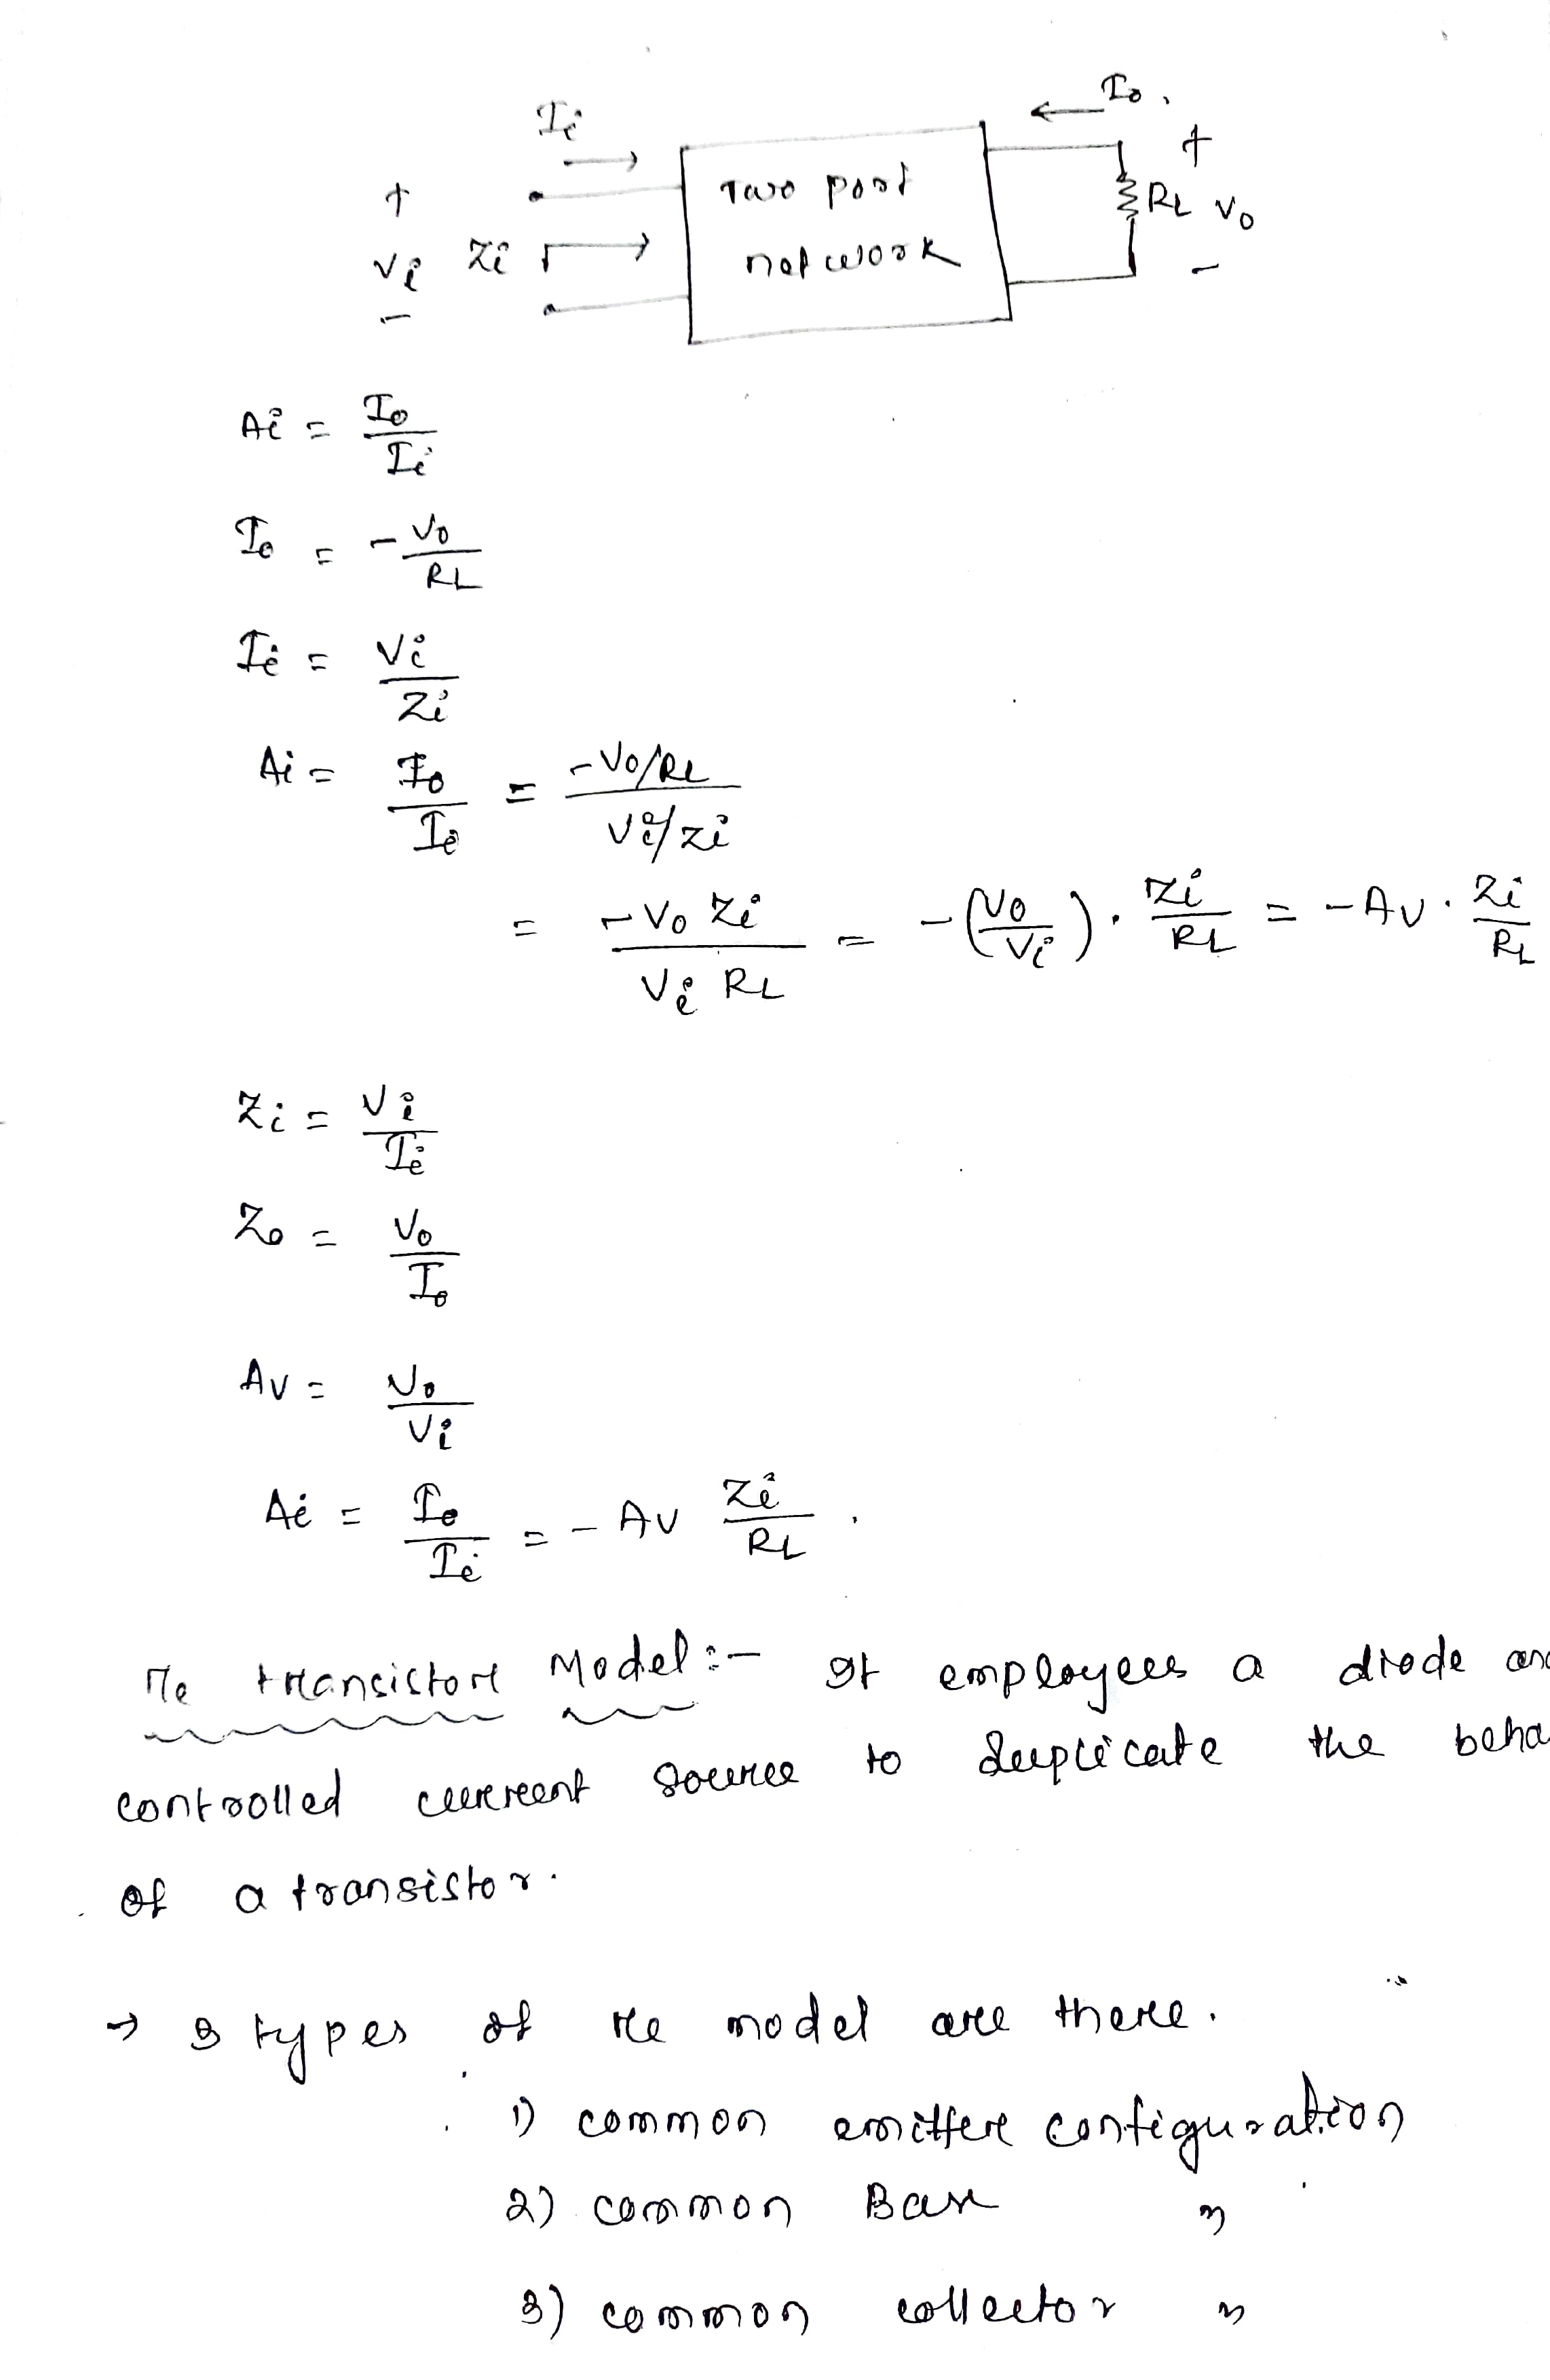 Ii
Io,
+ Two port +
Vi Zi network RL Vo
- -
Ai = Io/Ii
Io = -Vo/RL
Ii = Vi/Zi
Ai = Io/Ii = (-Vo/RL)/(Vi/Zi)
= -Vo Zi/Vi RL = -(Vo/Vi) . Zi/RL = -Av . Zi/RL
Zi = Vi/Ii
Zo = Vo/Io
Av = Vo/Vi
Ai = Io/Ii = - Av Zi/RL .
re transistor Model :- It employees a diode and
controlled current source to duplicate the beha
of a transistor.
→ 3 types of re model are there.
1) common emitter configuration
2) common Base "
3) common collector "